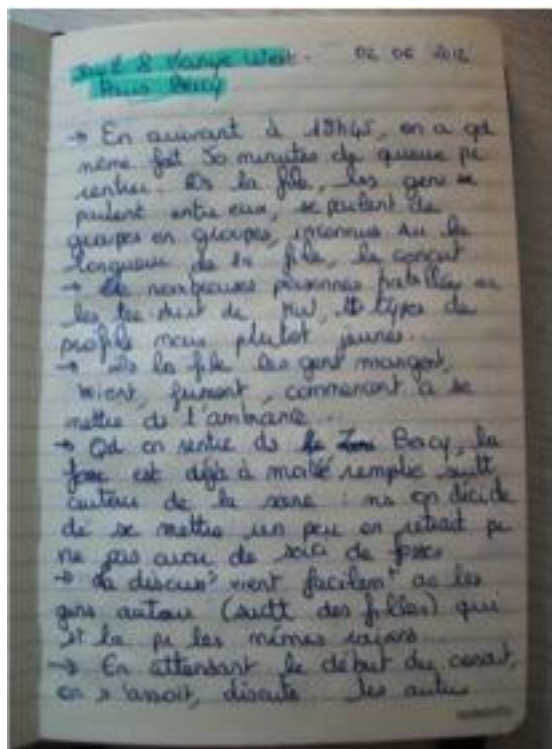 Jay Z & Kanye West. 02 06 2012
Paris Bercy
→ En arrivant à 19h45, on a qd
même fait 50 minutes de queue pr
rentrer. Ds la file, les gens se
parlent entre eux, se parlent de
groupes en groupes, inconnus sur la
longueur de la file, le concert
→ De nombreuses personnes habillées
les tee shirt de KW, types de
profils mais plutot jeunes.
→ Ds la file les gens mangent,
boivent, fument, commencent à se
mettre de l'ambiance.
→ Qd on rentre ds Bercy, la
fosse est déjà à moitié remplie surtt
autour de la scene : ns on décide
de se mettre un peu en retrait pr
ne pas avoir de souci de fosse
→ La discus° vient facilemt ac les
gens autour (surtt des filles) qui
st la pr les mêmes raisons
→ En attendant le début du concert,
on s'assoit, discute les autres